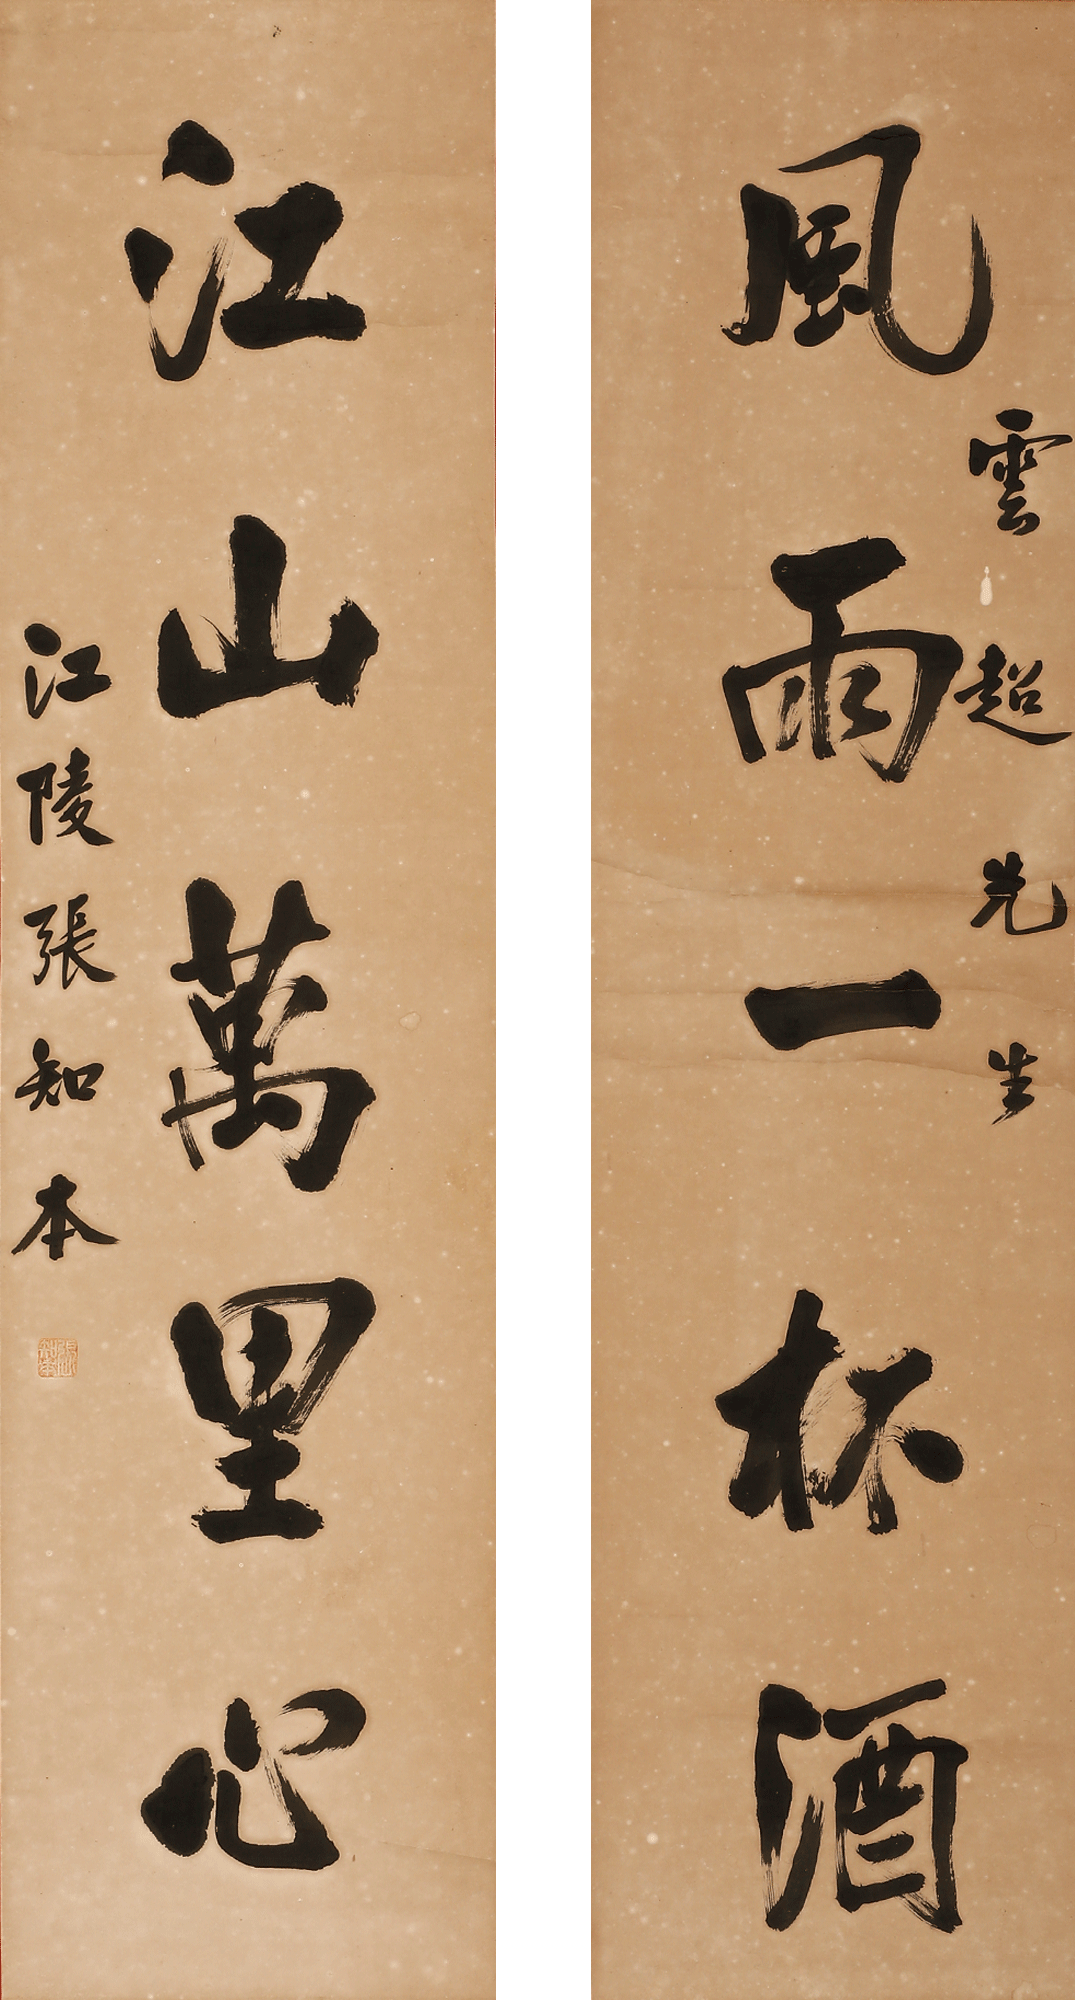 風雨一杯酒
雲超先生
江山萬里心
江陵張知本